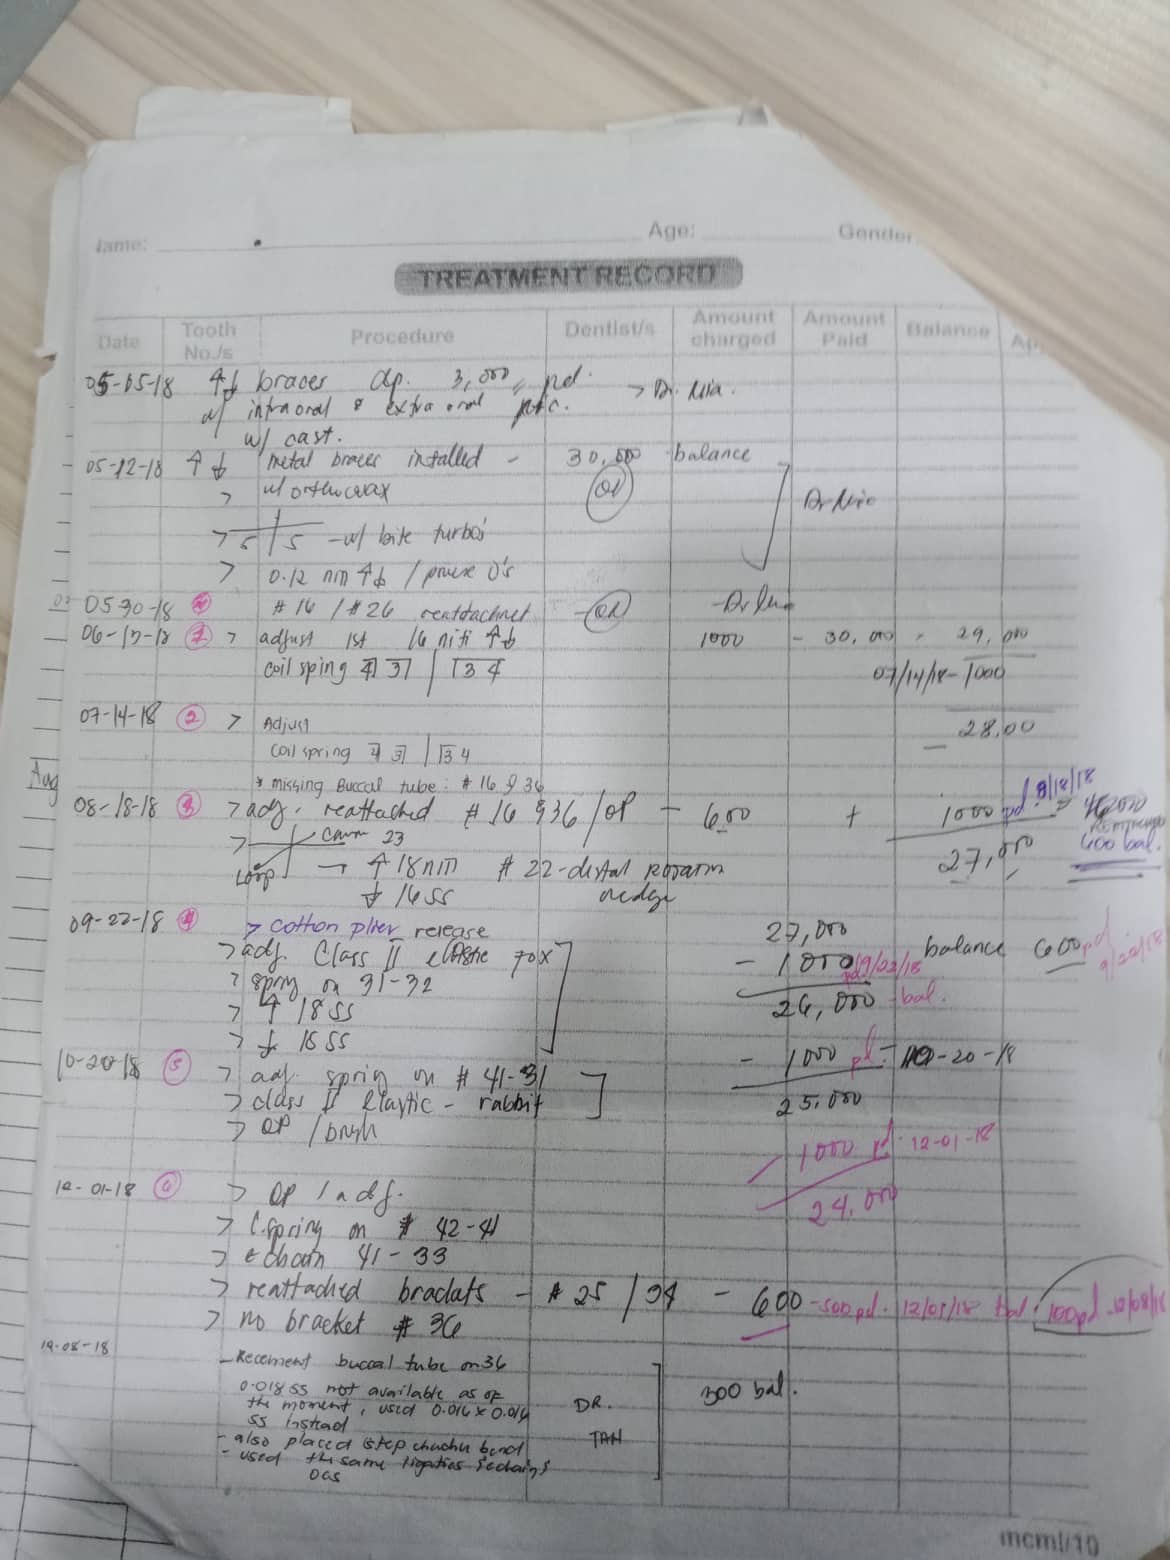 Name: Age: Gender
TREATMENT RECORD
Date Tooth No./s Procedure Dentist/s Amount charged Amount Paid Balance Ap
05-05-18 braces dp. 3,000 pd. > Dr. Nia.
w/ intraoral & extra oral
w/ cast.
05-12-18 metal braces installed - 30,000 balance
> w/ orthowax
> 5 | 5 - w/ bite turbo's
> 0.12 nm /
05-30-18 #16 / #26
06- 1 > adjust 1st 16 niti 1000 - 30,000 - 29,000
coil sping 4 3 | 3 4 07/14/18 - 1000
07-14-18 2 > Adjust 28,00
coil spring 4 3 | 3 4
* missing Buccal tube: #16 & 36
Aug
08-18-18 3 > adj. reattached #16 & 36 / OP - 600 + 1000 pd. 8/18/18
> 23 27,000 400 bal.
Loop → 18 nm #22 - distal
16 ss wedge
09-22-18 4 > cotton plier release 27,000
> adj. Class II elastic fox - 1000 pd 9/22/18 balance 600 pd 9/22/18
> spring on 31-32 26,000 - bal.
> 18 ss
> 16 ss
10-20-18 5 > adj. spring on #41-31 - 1000 pd - 10-20-18
> class II Elastic - rabbit 25,000
> OP / brush
1000 pd. 12-01-18
12-01-18 6 > OP / adj. 24,000
> C.spring on # 42-41
> chain 41-33
> reattached brackets - # 25 / 34 - 600 - 500 pd. 12/01/18 bal. 100 pd - 12/08/18
> no bracket # 36
12-08-18
- Recement buccal tube on 36
0.018 ss not available as of 300 bal.
the moment, used 0.016 x 0.016 DR.
ss instead
- also placed step bend TAN
- used the same ligaties & chains
OAS
mcml/10